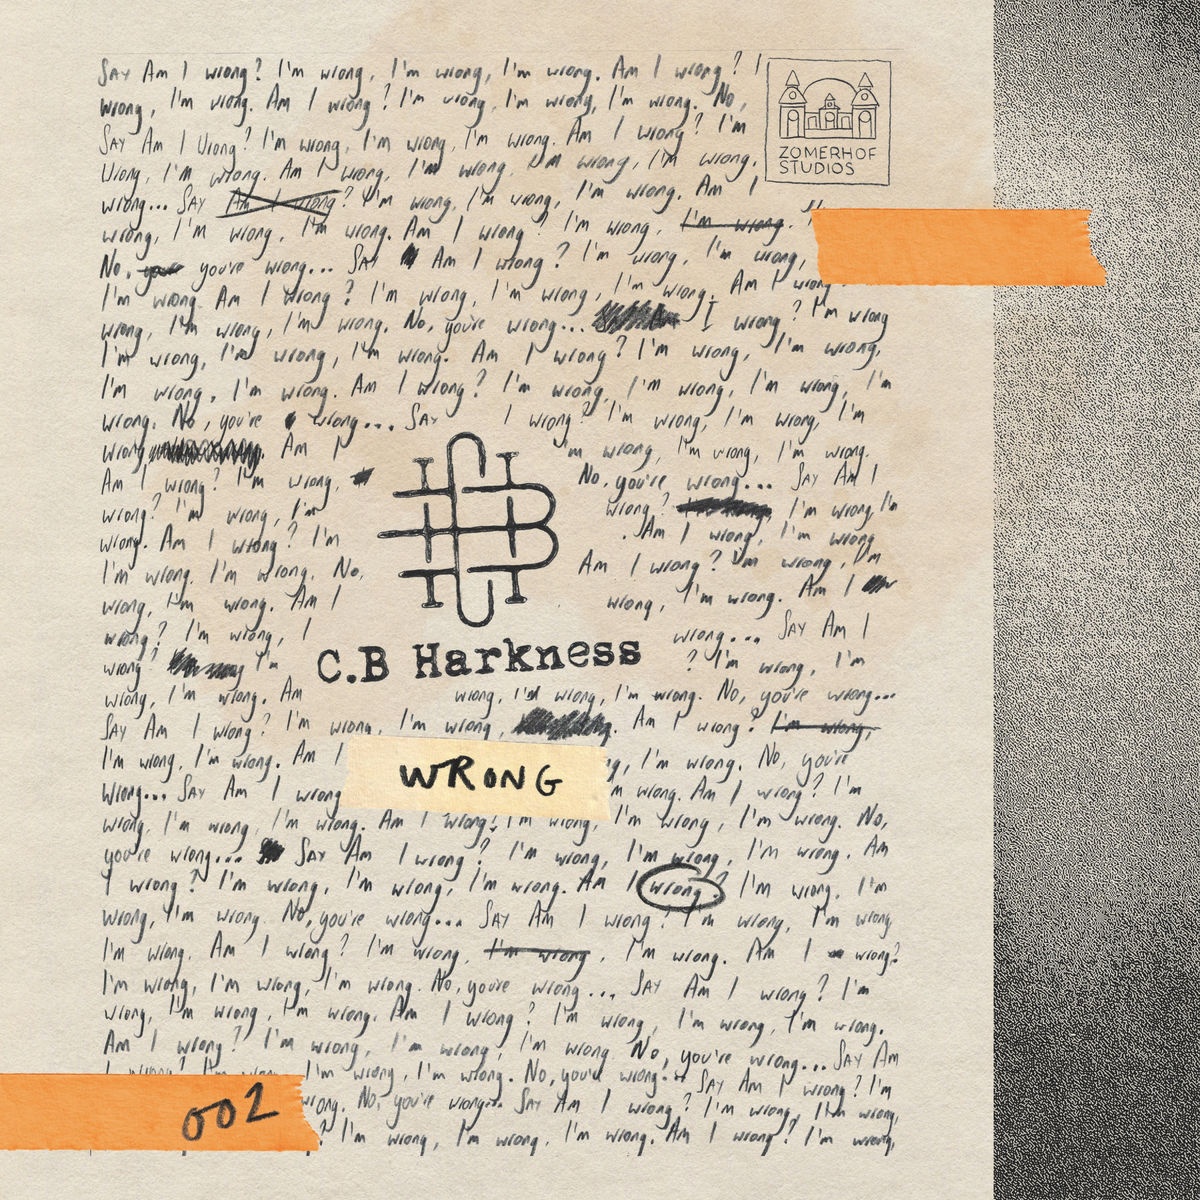 Say Am I wrong? I'm wrong, I'm wrong, I'm wrong. Am I wrong? I
wrong, I'm wrong. Am I wrong? I'm wrong, I'm wrong, I'm wrong. No,
Say Am I wrong? I'm wrong, I'm wrong, I'm wrong. Am I wrong? I'm
wrong, I'm wrong. Am I wrong, I'm wrong, I'm wrong, I'm wrong.
ZOMERHOF
STUDIOS
wrong... Say Am I wrong? I'm wrong, I'm wrong, I'm wrong. Am I
wrong, I'm wrong, I'm wrong. Am I wrong? I'm wrong, I'm wrong.
No, you're wrong... Say Am I wrong? I'm wrong, I'm wrong,
I'm wrong. Am I wrong? I'm wrong, I'm wrong, I'm wrong. Am I wrong
wrong, I'm wrong, I'm wrong. No, you're wrong... I wrong? I'm wrong
I'm wrong, I'm wrong, I'm wrong. Am I wrong? I'm wrong, I'm wrong,
I'm wrong, I'm wrong. Am I wrong? I'm wrong, I'm wrong, I'm wrong, I'm
wrong. No, you're wrong... Say I wrong? I'm wrong, I'm wrong, I'm
wrong Am I 'm wrong, I'm wrong, I'm wrong.
Am I wrong? I'm wrong, No, you're wrong... Say Am I
wrong? I'm wrong, I'm wrong? I'm wrong, I'm
wrong. Am I wrong? I'm Am I wrong, I'm wrong
I'm wrong. I'm wrong. No, Am I wrong? I'm wrong, I'm
wrong, I'm wrong. Am I wrong, I'm wrong. Am I
wrong? I'm wrong, I wrong... Say Am I
C.B Harkness
wrong? I'm ? I'm wrong, I'm
wrong, I'm wrong. Am wrong, I'm wrong, I'm wrong. No, you're wrong...
Say Am I wrong? I'm wrong, I'm wrong, Am I wrong? I'm wrong,
I'm wrong, I'm wrong. Am I I'm wrong. No, you're
WRONG
wrong... Say Am I wrong 'm wrong. Am I wrong? I'm
wrong, I'm wrong, I'm wrong. Am I wrong? I'm wrong, I'm wrong, I'm wrong. No,
you're wrong... Say Am I wrong? I'm wrong, I'm wrong, I'm wrong. Am
I wrong? I'm wrong, I'm wrong, I'm wrong. Am I wrong? I'm wrong. I'm
wrong, I'm wrong. No, you're wrong... Say Am I wrong? I'm wrong, I'm wrong,
I'm wrong. Am I wrong? I'm wrong, I'm wrong, I'm wrong. Am I wrong?
I'm wrong, I'm wrong, I'm wrong. No, you're wrong... Say Am I wrong? I'm
wrong, I'm wrong, I'm wrong. Am I wrong? I'm wrong, I'm wrong, I'm wrong.
Am I wrong? I'm wrong, I'm wrong, I'm wrong. No, you're wrong... Say Am
I'm wrong, I'm wrong. No, you're wrong... Say Am I wrong? I'm
002
wrong. No, you're wrong... Say Am I wrong? I'm wrong, I'm wrong,
? I'm wrong, I'm wrong, I'm wrong. Am I wrong? I'm wrong,